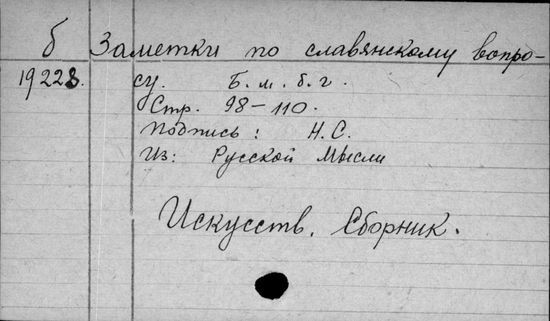 б Заметки по славянскому вопро-
19228. су. Б. м. б. г.
Стр. 98-110.
Подпись: Н.С.
Из: Русской Мысли
Искусств. Сборник.